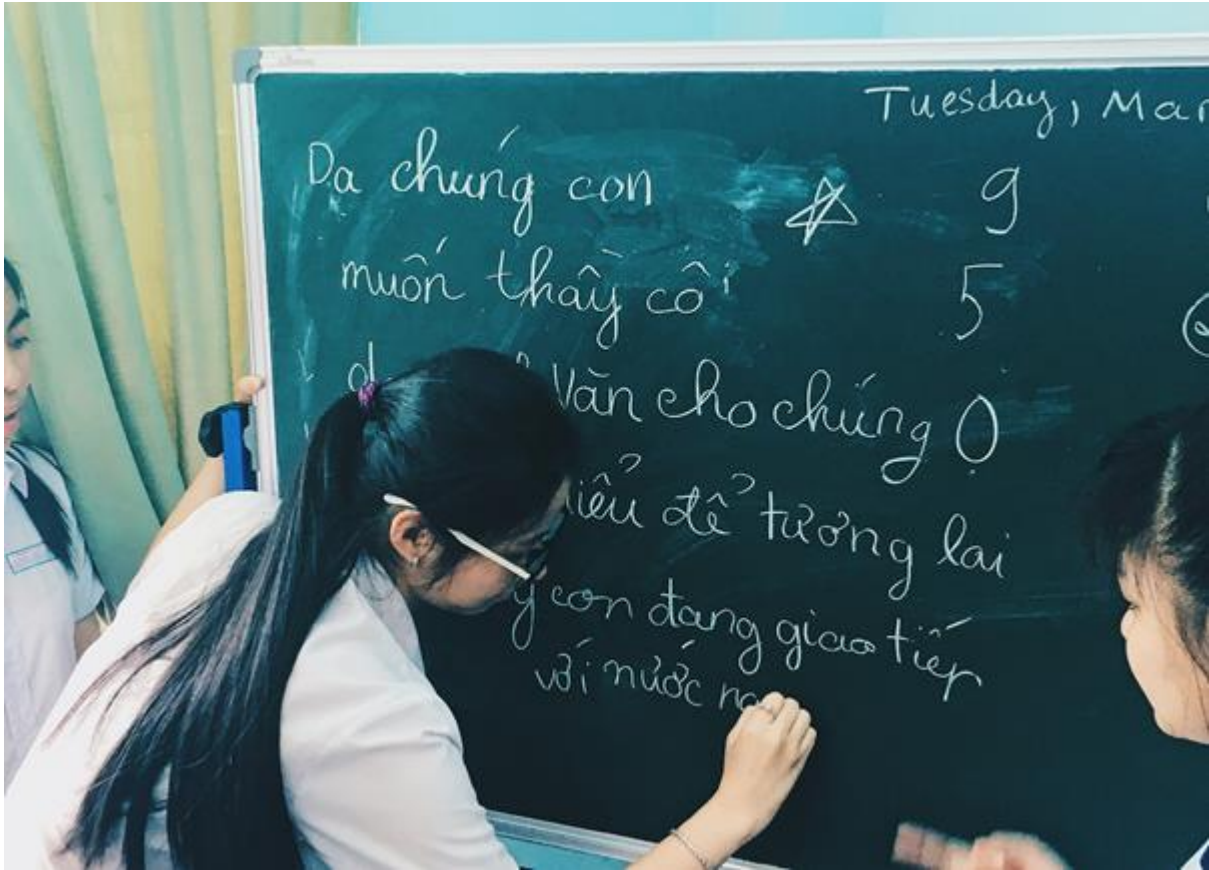 Tuesday, Mar
Dạ chúng con
muốn thầy cô
Văn cho chúng
để tương lai
con đang giao tiếp
với nước
9
5
0